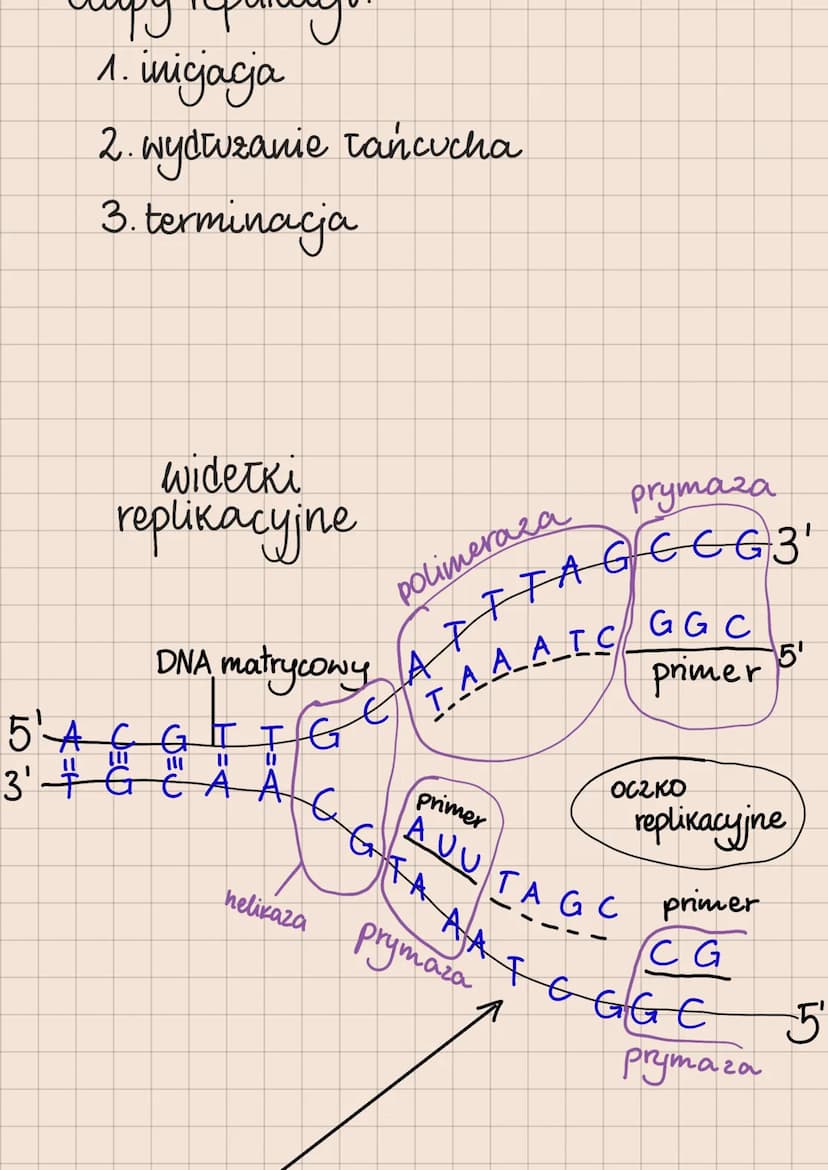 1. inicjacja
2. wydłużanie łańcucha
3. terminacja
widełki
replikacyjne
prymaza
polimeraza
A T T T A G C C G 3'
T A A A T C G G C 5'
primer
DNA matrycowy
5' A C G T T G C
3' T G C A A C G
oczko
replikacyjne
primer
A U U T A G C
primer
C G
T A A A T C G G C 5'
helikaza
prymaza
prymaza